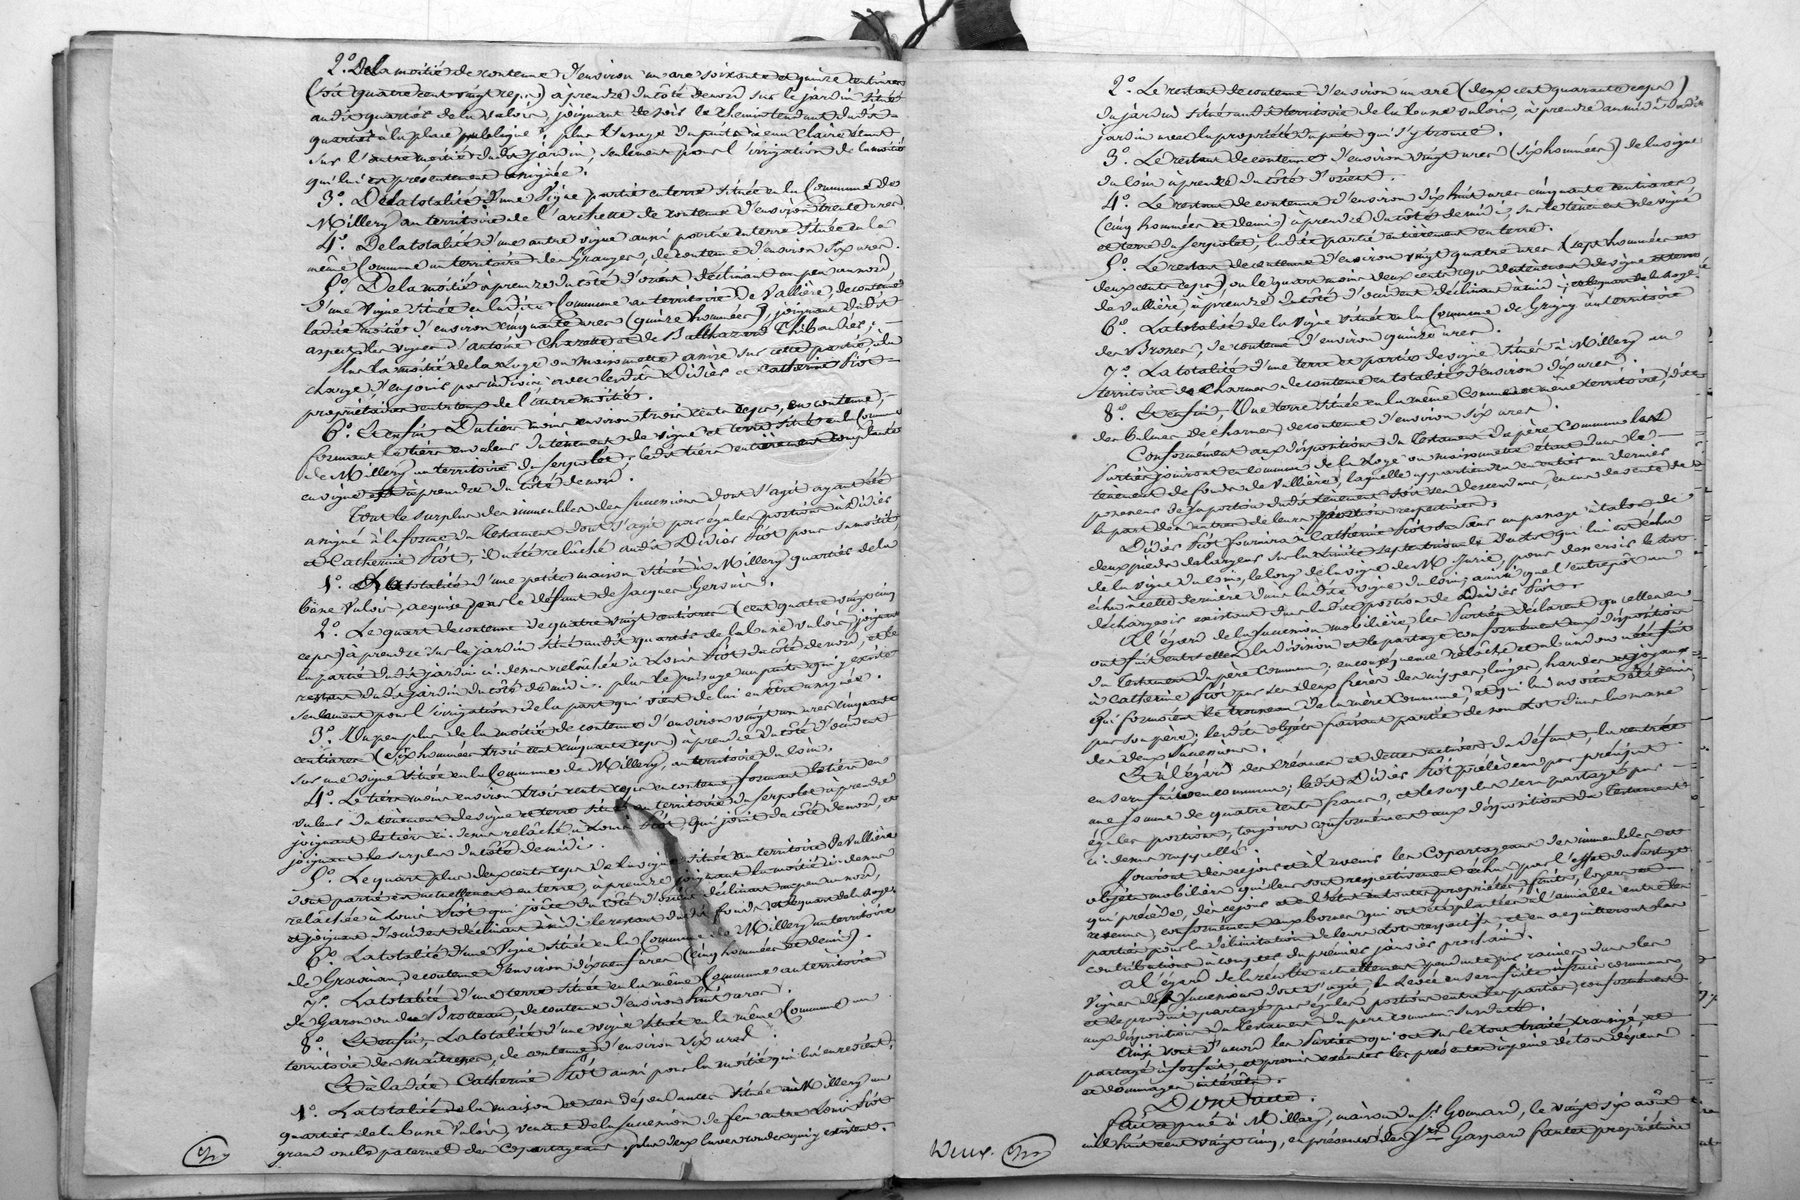 2.° De la moitié de contenue d'environ un are soixante et quinze centiares
(soit quatre cent vingt ceps) à prendre du côté de nord sur le jardin situé
audit quartié de la valois, joignant de soir le chemin tendant dudit
quartié à la place publique, plus l'usage du puits à eau claire étant
sur l'autre moitié dudit jardin, seulement pour l'irrigation de la moitié
qui lui est présentement assignée.
3.° De la totalité d'une Vigne partie en terre située en la Commune de
Millery au territoire de l'archette de contenue d'environ trente ares.
4.° De la totalité d'une autre vigne aussi partie en terre située en la
même Commune au territoire des Granges, de contenue d'environ six ares.
5.° De la moitié à prendre du côté d'orient déclinant un peu au nord,
d'une Vigne située en ladite Commune au territoire De Vallière, de contenue
ladite moitié d'environ cinquante ares (quinze hommées), joignant dudit
aspect les vignes d'antoine Chazotte et de Balthazard Thibaudier;
Sur la moitié de la Loge ou maisonnette assise sur cette partie, à la
charge d'en jouir par indivis avec lesdits Didier et Catherine Fiot
propriétaires entr'eux de l'autre moitié.
6.° Et enfin Du tiers moins environ trois cents ceps, en contenue,
formant le tiers en valeur du tènement de vigne et terre situé en la Commune
de Millery au territoire du serpolet, ledit tiers entièrement complanté
en vigne et à prendre du côté de nord.
Tout le surplus des immeubles des successions dont s'agit ayant été
assigné à la forme du Testament dont s'agit par égales portions à Didier
et Catherine Fiot, il a été relâché audit Didier Fiot pour sa moitié,
1.° La totalité d'une petite maison située à Millery quartié de la
bûne Valois, acquise par le défunt de Jacques Gervais.
2.° Le quart de contenue de quatre vingt centiares (cent quatre vingt cinq
ceps) à prendre sur le jardin situé audit quartié de la bûne valois, joignant
la partie dudit jardin ci-dessus relâchée à Louis Fiot du côté de nord, et le
restant dudit jardin du côté de midi. plus le puisage au puits qui y existe
seulement pour l'irrigation de la part qui vient de lui en être assignée.
3.° Un peu plus de la moitié de contenue d'environ vingt un ares cinquante
centiares (six hommées trois cent cinquante ceps) à prendre du côté d'occident
sur une vigne située en la Commune de Millery, au territoire du loin.
4.° Le tiers moins environ trois cents ceps en contenue formant le tiers en
valeur du tènement de vigne et terre situé au territoire du serpolet à prendre
joignant le tiers ci-dessus relâché à Louis Fiot, qui joint du côté de nord, et
joignant le surplus du côté de midi.
5.° Le quart plus deux cents ceps de la vigne située au territoire De Vallière
dont partie est actuellement en terre, à prendre joignant la moitié ci-dessus
relâchée à Louis Fiot qui joint du côté d'orient déclinant un peu au nord,
et joignant d'occident déclinant à midi le restant dudit fonds, et le quart de la Loge.
6.° La totalité d'une Vigne située en la Commune de Millery au territoire
de Gravinan, de contenue d'environ dixneuf ares (cinq hommées et demie).
7.° La totalité d'une terre située en la même Commune au territoire
de Garon ou des Brotteau, de contenue d'environ huit ares.
8.° Et enfin, La totalité d'une vigne située en la même Commune au
territoire des Maîtresses, de contenue d'environ six ares.
Et à ladite Catherine Fiot aussi pour la moitié qui lui en revient,
1.° La totalité de la maison et ses dépendances située à Millery au
quartié de la bûne Valois, venant de la succession de feu autre Louis Fiot
grand oncle paternel des Copartageans, plus deux cuves rondes qui y existent.
2.° Le restant de contenue d'environ un are (deux cent quarante ceps)
du jardin situé audit territoire de la bûne valois, à prendre au midi dudit
jardin avec la propriété du puits qui s'y trouve.
3.° Le restant de contenue d'environ vingt ares (six hommées) de la vigne
du loin à prendre du côté d'orient.
4.° Le restant de contenue d'environ dix huit ares cinquante centiares
(cinq hommées et demie) à prendre du côté de midi, sur le tènement de vigne
et terre du serpolet, ladite partie entièrement en terre.
5.° Le restant de contenue d'environ vingt quatre ares (sept hommées et
deux cents ceps) ou le quart moins deux cents ceps du tènement de vigne et terre
de Vallière, à prendre du côté d'occident déclinant à midi, et le quart de la Loge.
6.° La totalité de la Vigne située en la Commune de Grigny au territoire
des Brosses, de contenue d'environ quinze ares.
7.° La totalité d'une terre et partie de vigne située à Millery au
territoire des Charmes de contenue en totalité d'environ dix ares.
8.° Et enfin, Une terre située en la même Commune et même territoire, dite
des balmes de charmes, de contenue d'environ six ares.
Conformément aux dispositions du Testament du père Commun les
Parties jouiront en commun de la Loge ou maisonnette étant dans le
tènement de fonds de Vallière, laquelle appartiendra en entier au dernier
possesseur de sa portion dudit tènement soit ses descendans, en cas de vente de
la part des autres de leurs portions respectives.
Didier Fiot fournira à Catherine Fiot sa sœur un passage à talon de
deux pieds de largeur sur la limite septentrionale du lot qui lui est échu
de la vigne du loin, le long de la vigne de M. Jurie, pour desservir le lot
échu à cette dernière dans ladite vigne du loin; ainsi que l'entrepôt au
déchargeoir existant dans ladite portion de Didier Fiot.
A l'égard de la succession mobilière, les Parties déclarent qu'elles en
ont fait entr'elles la division et le partage conformément aux dispositions
du Testament du père Commun, en conséquence relâché et abandon a été fait
à Catherine Fiot par ses deux frères des nippes, linges, hardes et joyaux
qui formoient le trousseau de la mère Commune, et qui lui avoient été remis
par son père, lesdits objets faisant partie de son Lot dans la masse
des deux successions.
Et à l'égard des créances et dettes actives du défunt, la rentrée
en sera faite en commun; ledit Didier Fiot prélèvera par préciput
une somme de quatre cents francs, et le surplus sera partagé par
égales portions, toujours conformément aux dispositions du Testament
ci-dessus rappellé.
Jouiront dès ce jour et à l'avenir les Copartageans des immeubles et
objets mobiliers qui leur sont respectivement échus par l'effet du Partage
qui précède, dès ce jour et à l'état en toutes propriétés, fruits, loyers et
revenus, conformément aux bornes qui ont été plantées à l'amiable entre les
parties pour la délimitation de leurs lots respectifs, et en acquitteront les
contributions à compter du premier janvier prochain.
A l'égard de la récolte actuellement pendante par racines dans les
Vignes des successions dont s'agit, la Levée en sera faite à frais communs
et le produit partagé par égales portions entre les parties, conformément
aux dispositions du Testament du père commun susdaté.
Ainsi sont d'accord les Parties qui ont sur le tout traité, transigé, et
partagé à forfait, et promis exécuter les présentes à peine de tous dépens
et dommages intérêts.
Dont acte.
Fait et passé à Millery, maison du S.r Gonnard, le vingt six août
mil huit cent vingt cinq, en présence des S.rs Gaspard fanter propriétaire